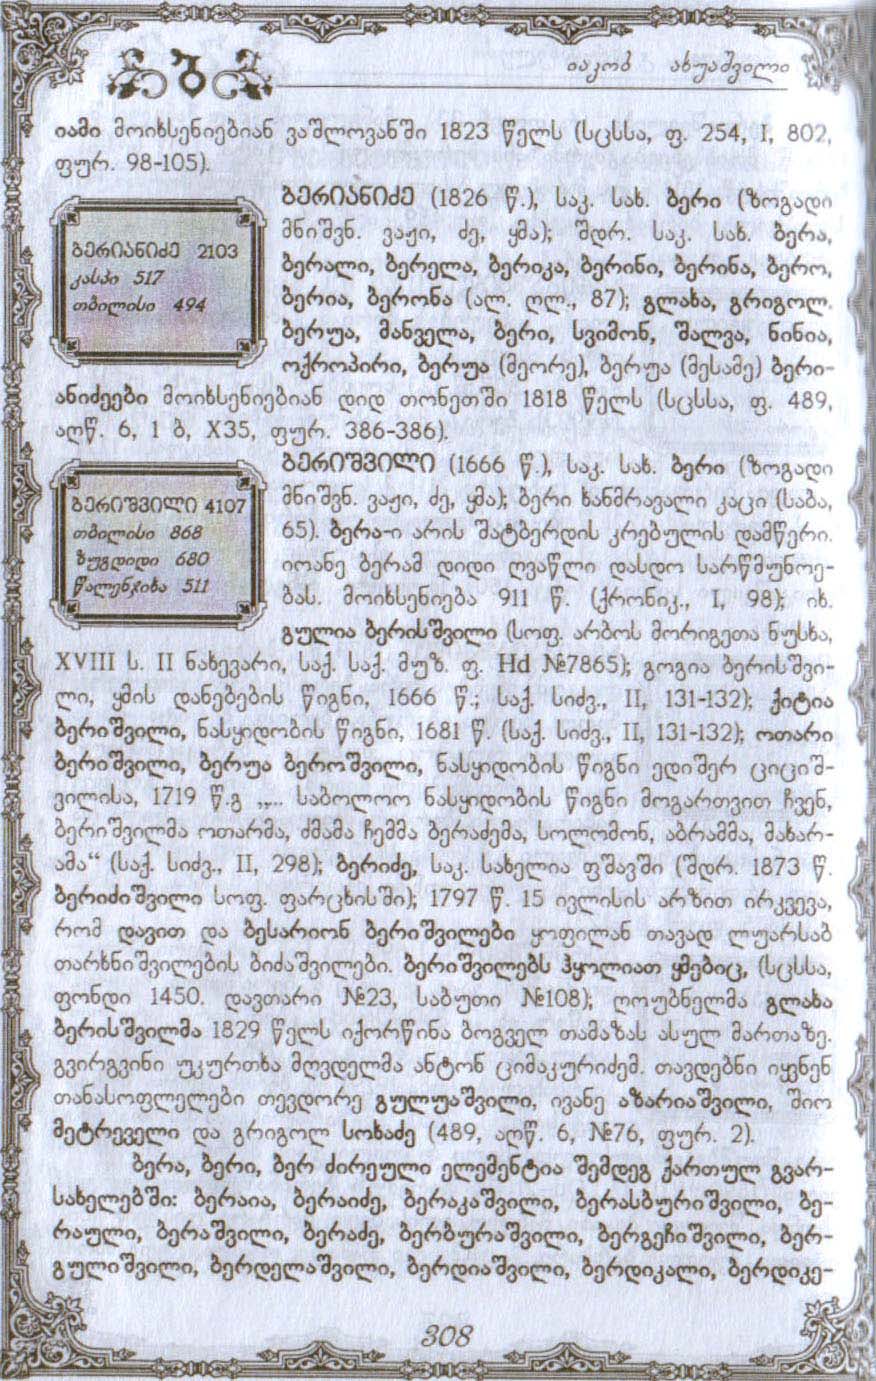 იაკობ ახუაშვილი
იამი მოიხსენიებიან ვაშლოვანში 1823 წელს (სცსსა, ფ. 254, I, 802,
ფურ. 98-105).
ბერიანიძე (1826 წ.), საკ. სახ. ბერი (ზოგადი
მნიშვნ. ვაჟი, ძე, ყმა); შდრ. საკ. სახ. ბერა,
ბერალი, ბერელა, ბერიკა, ბერინი, ბერინა, ბერო,
ბერია, ბერონა (ალ. ღლ., 87); გლახა, გრიგოლ.
ბერუა, მანველა, ბერი, სვიმონ, შალვა, ნინია,
ოქროპირი, ბერუა (მეორე), ბერუა (მესამე) ბერი-
ბერიანიძე 2103
კასპი 517
თბილისი 494
ანიძეები მოიხსენიებიან დიდ თონეთში 1818 წელს (სცსსა, ფ. 489,
აღწ. 6, 1 ბ, X35, ფურ. 386-386).
ბერიშვილი (1666 წ.), საკ. სახ. ბერი (ზოგადი
მნიშვნ. ვაჟი, ძე, ყმა); ბერი ხანმრავალი კაცი (საბა,
65). ბერა-ი არის შატბერდის კრებულის დამწერი.
იოანე ბერამ დიდი ღვაწლი დასდო სარწმუნოე-
ბას. მოიხსენიება 911 წ. (ქრონიკ., I, 98); იხ.
გულია ბერისშვილი (სოფ. არბოს მორიგეთა ნუსხა,
ბერიშვილი 4107
თბილისი 868
ზუგდიდი 680
წალენჯიხა 511
XVIII ს. II ნახევარი, საქ. საქ. მუზ. ფ. Hd №7865); გოგია ბერისშვი-
ლი, ყმის დანებების წიგნი, 1666 წ.; საქ. სიძვ., II, 131-132); ქიტია
ბერიშვილი, ნასყიდობის წიგნი, 1681 წ. (საქ. სიძვ., II, 131-132); ოთარი
ბერიშვილი, ბერუა ბეროშვილი, ნასყიდობის წიგნი ედიშერ ციციშ-
ვილისა, 1719 წ.გ „... საბოლოო ნასყიდობის წიგნი მოგართვით ჩვენ,
ბერიშვილმა ოთარმა, ძმამა ჩემმა ბერაძემა, სოლომონ, აბრამმა, მახარ-
ამა“ (საქ. სიძვ., II, 298); ბერიძე, საკ. სახელია ფშავში (შდრ. 1873 წ.
ბერიძიშვილი სოფ. ფარცხისში); 1797 წ. 15 ივლისის არზით ირკვევა,
რომ დავით და ბესარიონ ბერიშვილები ყოფილან თავად ლუარსაბ
თარხნიშვილების ბიძაშვილები. ბერიშვილებს ჰყოლიათ ყმებიც, (სცსსა,
ფონდი 1450. დავთარი №23, საბუთი №108); ღოუბნელმა გლახა
ბერისშვილმა 1829 წელს იქორწინა ბოგველ თამაზას ასულ მართაზე.
გვირგვინი უკურთხა მღვდელმა ანტონ ციმაკურიძემ. თავდებნი იყვნენ
თანასოფლელები თევდორე გულუაშვილი, ივანე აზარიაშვილი, შიო
მეტრეველი და გრიგოლ სოხაძე (489, აღწ. 6, №76, ფურ. 2).
ბერა, ბერი, ბერ ძირეული ელემენტია შემდეგ ქართულ გვარ-
სახელებში: ბერაია, ბერაიძე, ბერაკაშვილი, ბერასბურიშვილი, ბე-
რაული, ბერაშვილი, ბერაძე, ბერბურაშვილი, ბერგეჩიშვილი, ბერ-
გულიშვილი, ბერდელაშვილი, ბერდიაშვილი, ბერდიკალი, ბერდიკე-
308